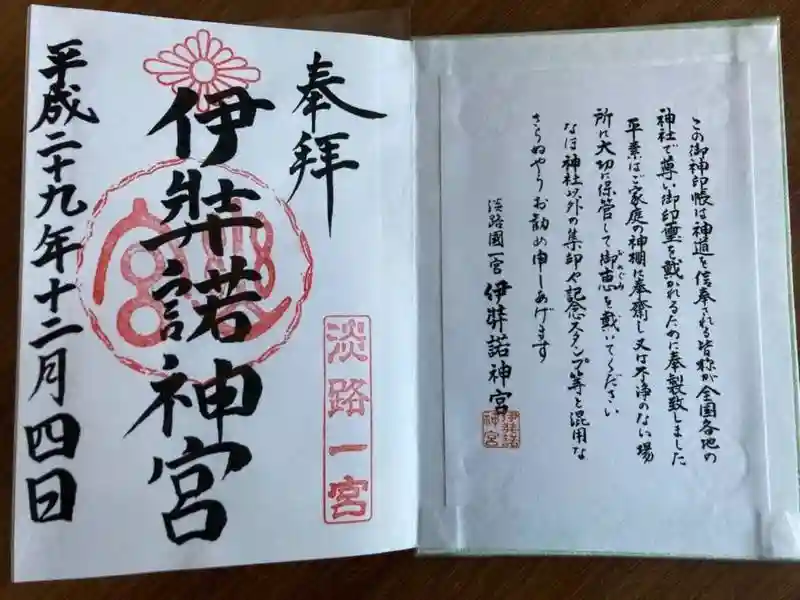 この御神印帳は神道を信奉される皆様が全国各地の
神社で尊い御印璽を戴かれるために奉製致しました
平素はご家庭の神棚に奉齋し又は不浄のない場
所に大切に保管して御恵を戴いてください
なほ神社以外の集印や記念スタンプ等と混用な
さらぬやうお勧め申しあげます
淡路國一宮 伊弉諾神宮
伊弉諾
神宮
奉拝
淡路一宮
伊弉諾神宮
平成二十九年十二月四日